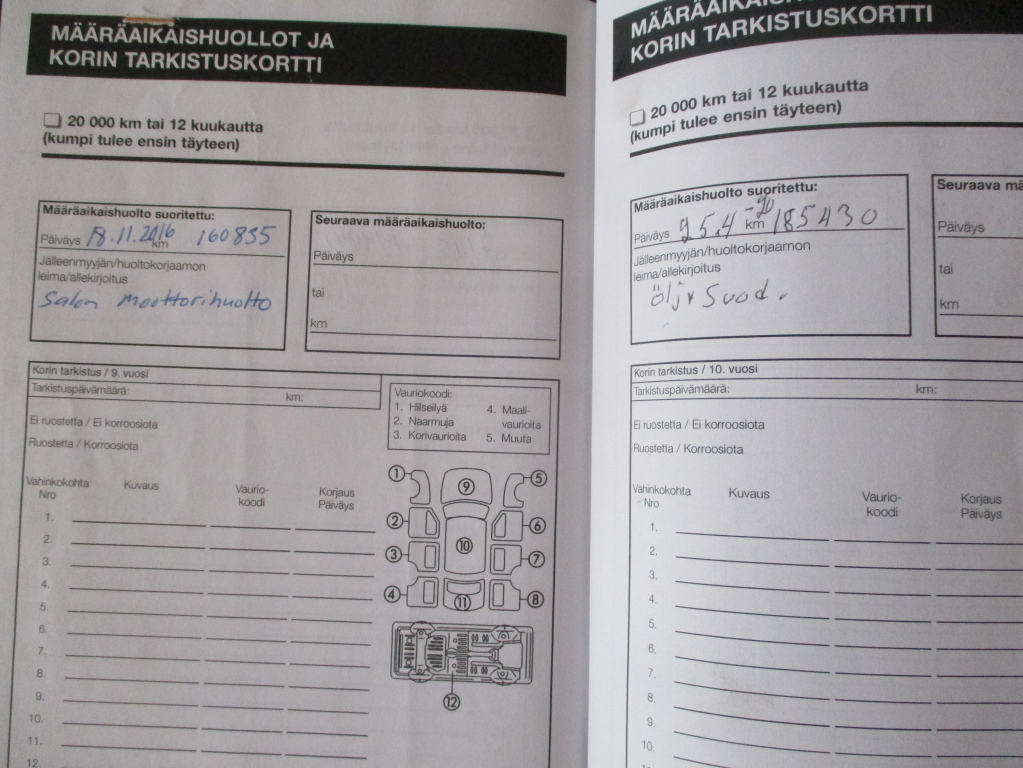 MÄÄRÄAIKAISHUOLLOT JA
KORIN TARKISTUSKORTTI
20 000 km tai 12 kuukautta
(kumpi tulee ensin täyteen)
Määräaikaishuolto suoritettu:
Päiväys 18.11.2016 km 160835
Jälleenmyyjän/huoltokorjaamon
leima/allekirjoitus
Salon moottorihuolto
Seuraava määräaikaishuolto:
Päiväys
tai
km
Korin tarkistus / 9. vuosi
Tarkistuspäivämäärä: km:
Ei ruostetta / Ei korroosiota
Ruostetta / Korroosiota
Vauriokoodi:
1. Hilseilyä
2. Naarmuja
3. Korivaurioita
4. Maali-
vaurioita
5. Muuta
Vahinkokohta
Nro
Kuvaus
Vaurio-
koodi
Korjaus
Päiväys
1.
2.
3.
4.
5.
6.
7.
8.
9.
10.
11.
12.
1
2
3
4
5
6
7
8
9
10
11
12
KORIN TARKISTUSKORTTI
20 000 km tai 12 kuukautta
(kumpi tulee ensin täyteen)
Määräaikaishuolto suoritettu:
Päiväys 25.4 -20 km 185430
Jälleenmyyjän/huoltokorjaamon
leima/allekirjoitus
Seuraava
Päiväys
tai
km
Korin tarkistus / 10. vuosi
Tarkistuspäivämäärä: km:
Ei ruostetta / Ei korroosiota
Ruostetta / Korroosiota
Vahinkokohta
Nro
Kuvaus
Vaurio-
koodi
Korjaus
Päiväys
1.
2.
3.
4.
5.
6.
7.
8.
9.
10.